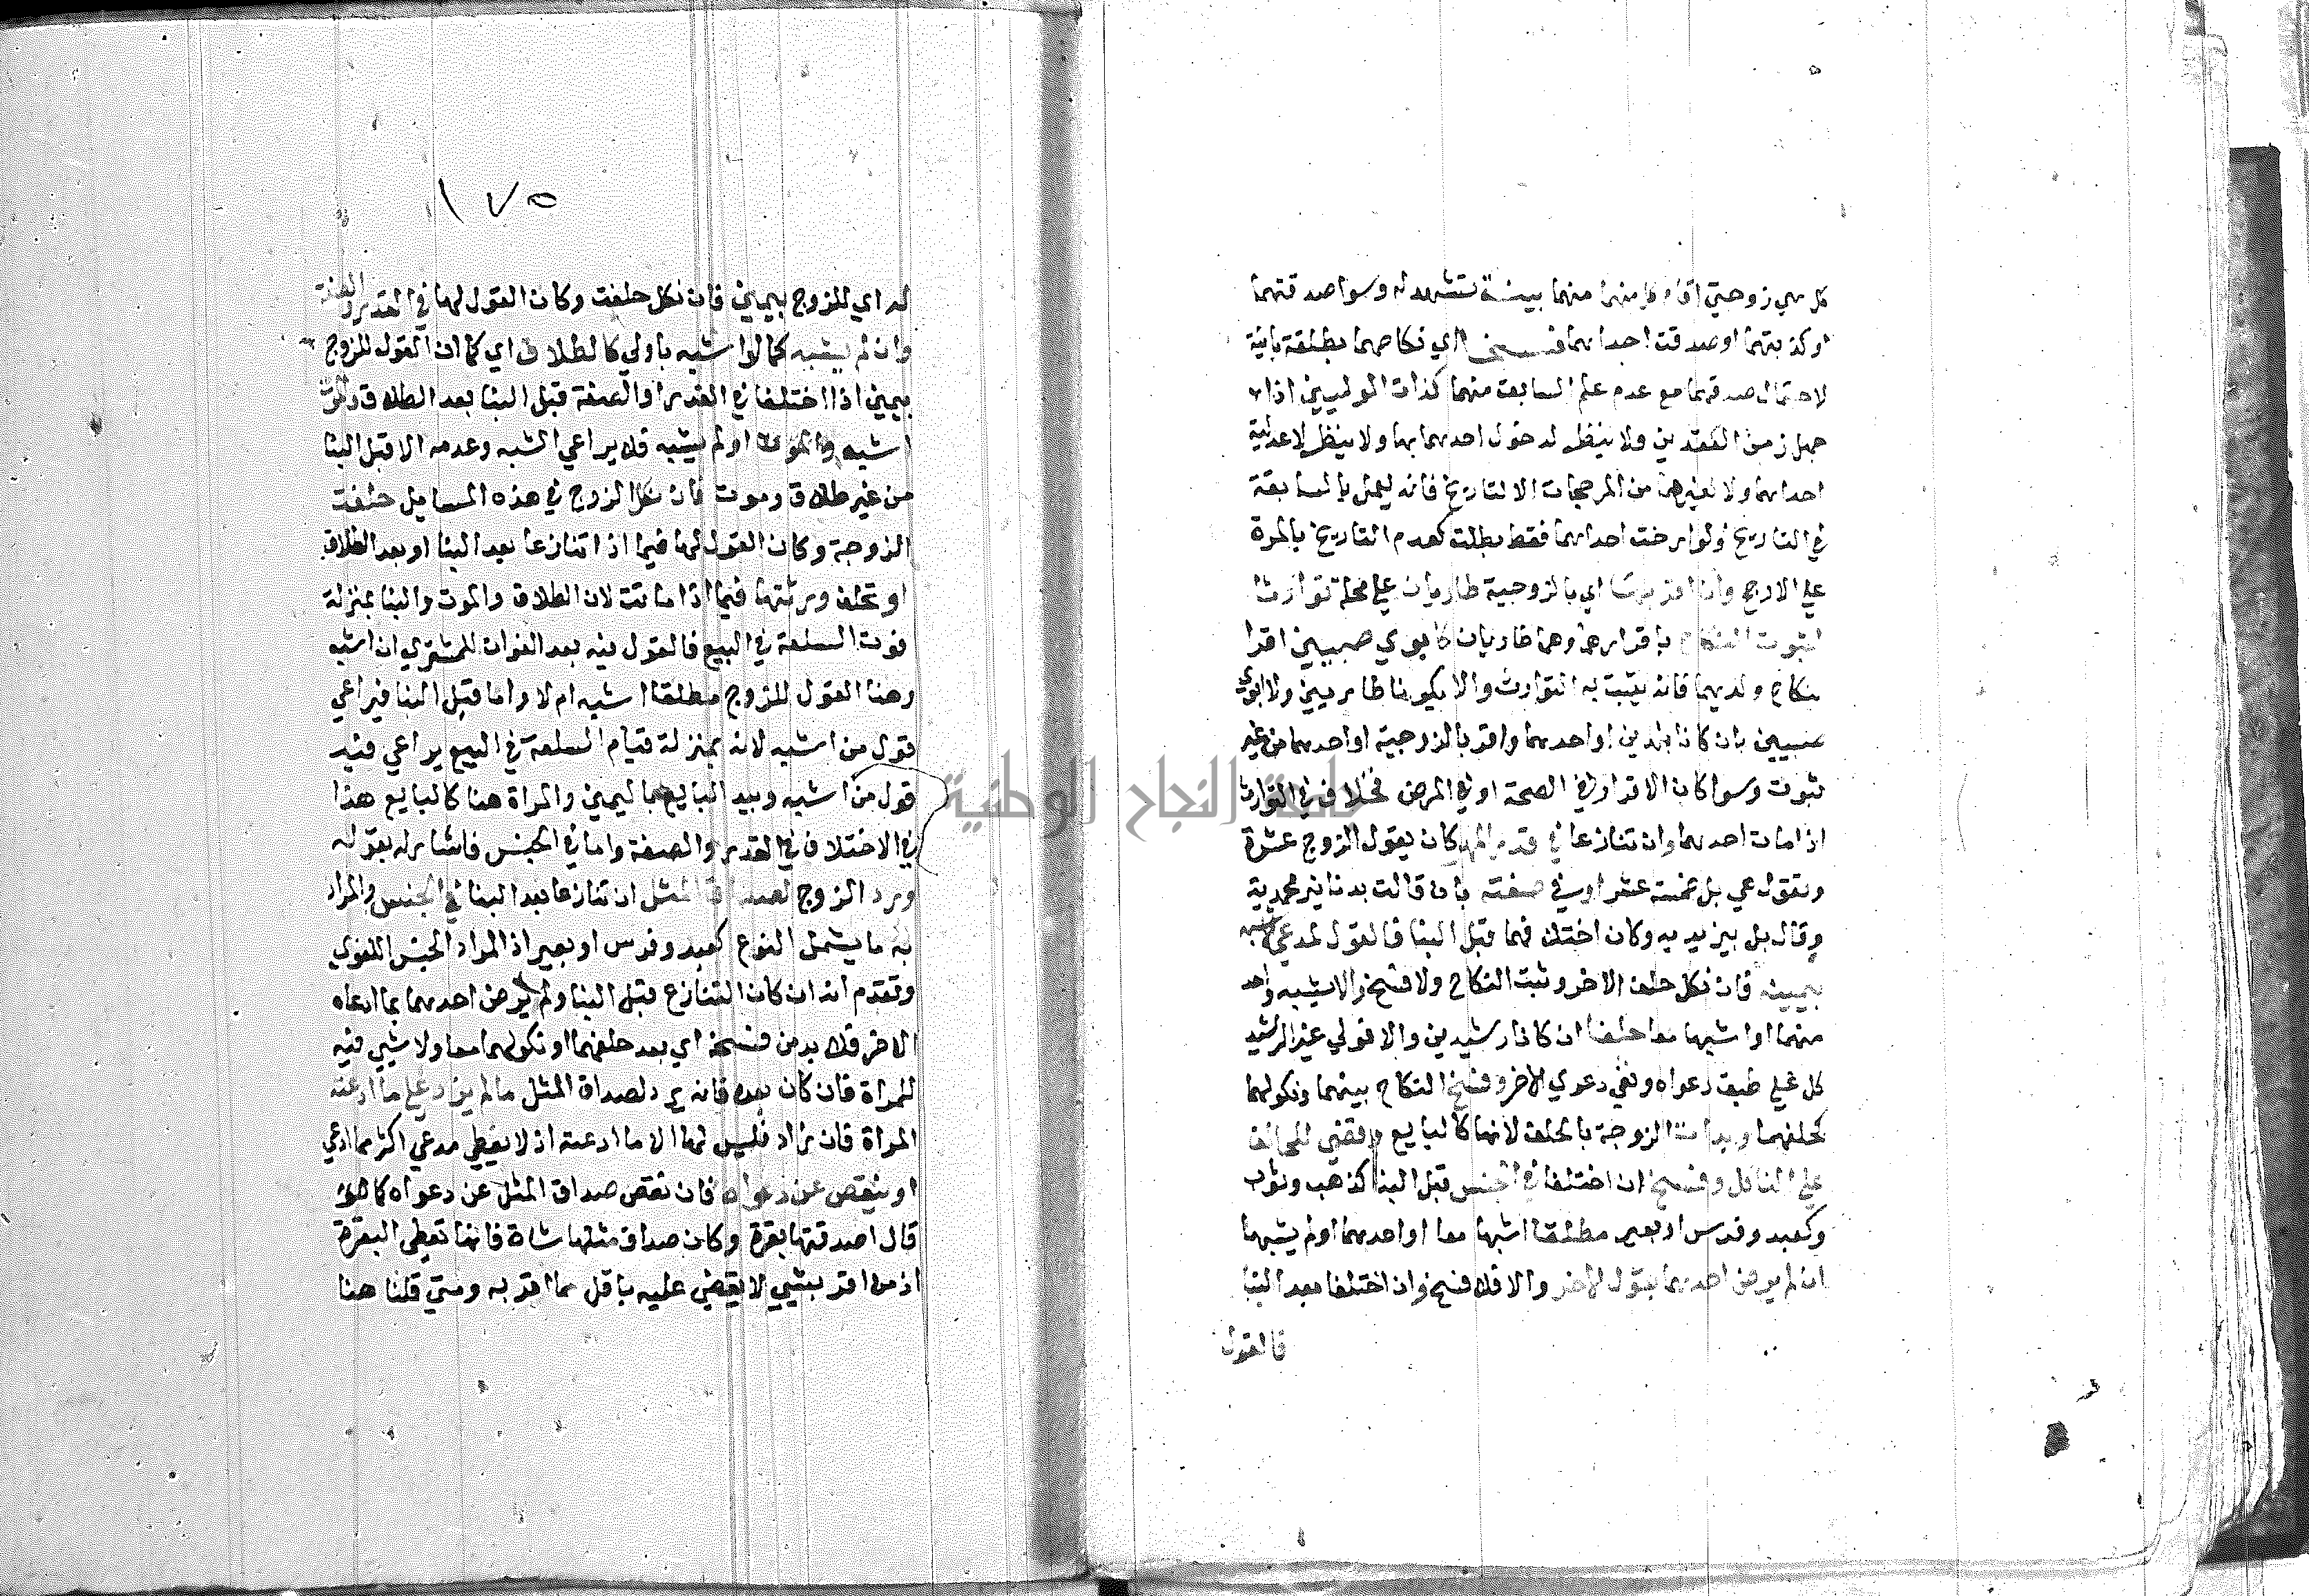 كل هي زوجتي اقام كل منهما بينة تشهد له وسوا صدقتهما
او كذبتهما او صدقت احداهما فسخا اي نكاحهما بطلقة باينة
لاحتمال صدقهما مع عدم علم السابق منهما كذات الوليين اذا
جهل زمن العقدين ولا ينظر لدخول احدهما بها ولا ينظر لاعدلية
احداهما ولا لغيرها من المرجحات الا التاريخ فانه يعمل بالسابقة
في التاريخ ولو ارخت احداهما فقط بطلت لعدم التاريخ بالمرة
علي الارجح وان اقر بها اي بالزوجية طاريان علي محلة توارثا
لثبوت النكاح باقرارهما وهما طاريان كابوي صبيين اقرا
بنكاح ولديهما فانه يثبت به التوارث والا يكونا طاريين ولا ابوي
صبيين بان كانا بلديين او احدهما واقر بالزوجية او احدهما من غير
ثبوت وسوا كان الاقرار في الصحة او في المرض فخلاف في التوارث
اذا مات احدهما وان تنازعا في قدر المهر كان يقول الزوج عشرة
وتقول هي بل خمسة عشر او في صفته بان قالت بدنانير محمدية
وقال بل يزيديه وكان اختلافهما قبل البنا فالقول لمدعي الاشبه
بيمينه فان نكل حلف الاخر وثبت النكاح ولا فسخ والا يشبه واحد
منهما او اشبها معا حلفا ان كانا رشيدين والا فولي غير الرشيد
كل علي طبق دعواه ونفي دعوي الاخر وفسخ النكاح بينهما ونكولهما
كحلفهما وبدات الزوجة بالحلف لانها كالبايع وقضي للحالف
علي الناكل وفسخ ان اختلفا في الجنس قبل البنا كذهب وثوب
وكعبد وفرس او بعير مطلقا اشبها معا او احدهما او لم يشبها
ان لم يرض احدهما بقول الاخر والا فلا فسخ وان اختلفا بعد البنا
فالقول
جامعة النجاح الوطنية
١٧٥
له اي للزوج بيمين فان نكل حلفت وكان القول لها في القدر والصفة
وان لم يشبه كما لو اشبه باولي كالطلاق اي كما ان القول للزوج
بيمين اذا اختلفا في القدر او الصفة قبل البنا بعد الطلاق والموت
اشبه او لم يشبه فلا يراعي الشبه وعدمه الا قبل البنا
من غير طلاق وموت فان نكل الزوج في هذه المسايل حلفت
الزوجة وكان القول لها فيما اذا تنازعا بعد البنا او بعد الطلاق
او تحلف ورثتها فيما اذا ماتت لان الطلاق والموت والبنا بمنزلة
فوت السلعة في البيع فالقول فيه بعد الفوات للمشتري ان اشبه
وهنا القول للزوج مطلقا اشبه ام لا واما قبل البنا فيراعي
قول من اشبه لانه بمنزلة قيام السلعة في البيع يراعي فيه
قول من اشبه وبيد البايع باليمين والمراة هنا كالبايع هذا
في الاختلاف في القدر والصفة واما في الجنس فاشار له بقوله
ورد الزوج لصداق المثل ان تنازعا بعد البنا في الجنس والمراد
به ما يشمل النوع كعبد وفرس او بعير اذ المراد الجنس اللغوي
وتقدم انه ان كان التنازع قبل البنا ولم يرض احدهما بما ادعاه
الاخر فلا بد من فسخه اي بعد حلفهما او نكولهما معا ولا شيي فيه
للمراة فان كان بعده فانه يرد لصداق المثل ما لم يزد علي ما ادعته
المراة فان زاد فليس لها الا ما ادعته اذ لا يعطي مدعي اكثر مما ادعي
او ينقص عن دعواه فان نقص صداق المثل عن دعواه كما لو
قال اصدقتها بقرة وكان صداق مثلها شاة فانها تعطي البقرة
اذ من اقر بشيي لا يقضي عليه باقل مما اقر به ومتي قلنا هنا